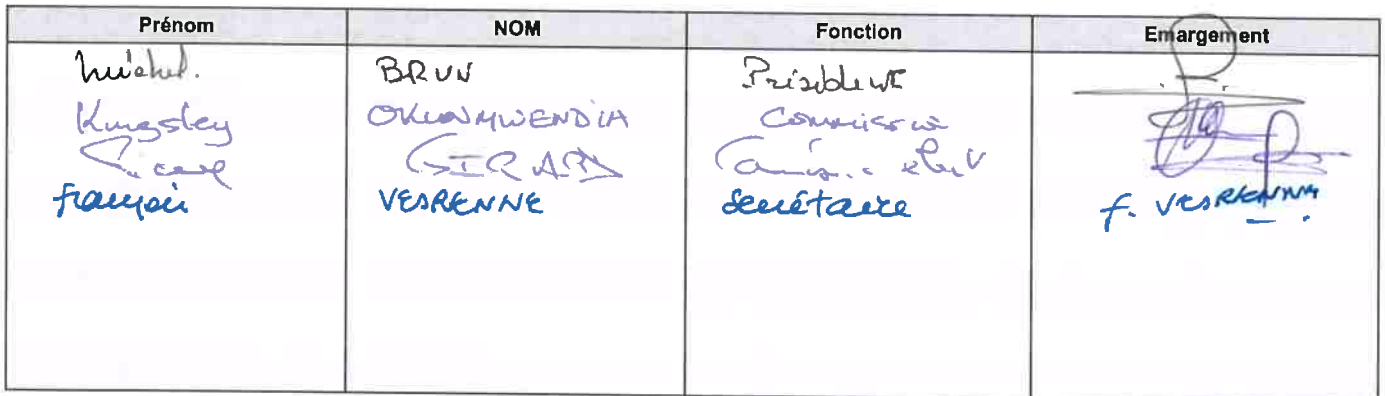 Prénom NOM Fonction Emargement
Michel. BRUN Président
Kingsley OKUNMWENDIA Commissaire
GIRARD
françois VESRENNE secrétaire f. VESRENNE